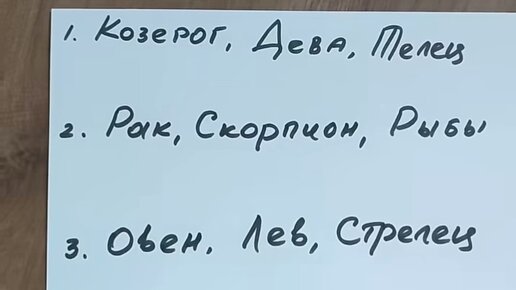 1. Козерог, Дева, Телец
2. Рак, Скорпион, Рыбы
3. Овен, Лев, Стрелец